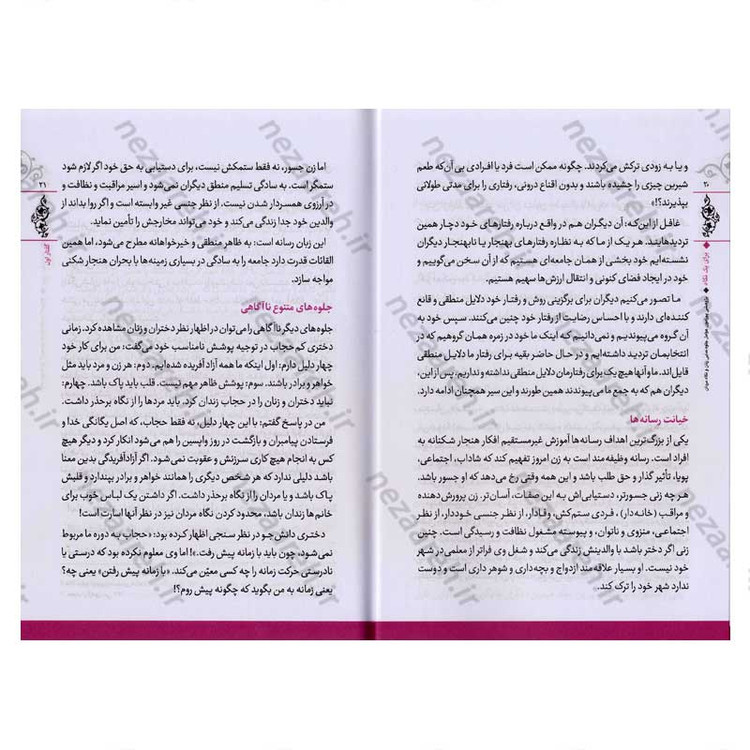 ۲۰
برای یک نگاه
و یا به زودی ترکش می‌کردند. چگونه ممکن است فرد یا افرادی بی‌آن‌که طعم
شیرین چیزی را چشیده باشند و بدون اقناع درونی، رفتاری را برای مدتی طولانی
بپذیرند؟!»
غافل از این‌که: آن دیگران هم در واقع درباره رفتارهای خود دچار همین
تردیدهایند. هر یک از ما که به نظاره رفتارهای بهنجار یا نابهنجار دیگران
نشسته‌ایم خود بخشی از همان جامعه‌ای هستیم که از آن سخن می‌گوییم و
خود در ایجاد فضای کنونی و انتقال ارزش‌ها سهیم هستیم.
ما تصور می‌کنیم دیگران برای برگزینی روش و رفتار خود دلایل منطقی و قانع
کننده‌ای دارند و با احساس رضایت از رفتار خود چنین می‌کنند. سپس خود به
آن گروه می‌پیوندیم و نمی‌دانیم که اینک ما خود در زمره همان گروهیم که در
انتخابمان تردید داشته‌ایم و در حال حاضر بقیه برای رفتار ما دلایل منطقی
قایل‌اند. ما و آنها هیچ یک برای رفتارمان دلایل منطقی نداشته و نداریم. پس از این،
دیگران هم که به جمع ما می‌پیوندند همین طورند و این سیر همچنان ادامه دارد.
خیانت رسانه‌ها
یکی از بزرگ‌ترین اهداف رسانه‌ها آموزش غیرمستقیم افکار هنجار شکنانه به
افراد است. رسانه وظیفه‌مند است به زن امروز تفهیم کند که شاداب، اجتماعی،
پویا، تأثیر گذار و حق طلب باشد و این همه وقتی رخ می‌دهد که او جسور باشد.
هر چه زنی جسورتر، دستیابی‌اش به این صفات، آسان‌تر. زن پرورش دهنده
و مراقب (خانه‌دار)، فردی ستم‌کش، وفادار، از نظر جنسی خوددار، از نظر
اجتماعی، منزوی و ناتوان، و پیوسته مشغول نظافت و رسیدگی است. چنین
زنی اگر دختر باشد با والدینش زندگی می‌کند و شغل وی فراتر از معلمی در شهر
خود نیست. او بسیار علاقه‌مند ازدواج و بچه‌داری و شوهر داری است و دوست
ندارد شهر خود را ترک کند.
۲۱
گفتار اول
اما زن جسور، نه فقط ستمکش نیست، برای دستیابی به حق خود اگر لازم شود
ستمگر است. به سادگی تسلیم منطق دیگران نمی‌شود و اسیر مراقبت و نظافت و
در آرزوی همسردار شدن نیست. از نظر جنسی غیر وابسته است و اگر روا بداند از
والدین خود جدا زندگی می‌کند و خود می‌تواند مخارجش را تأمین نماید.
این زبان رسانه است: به ظاهر منطقی و خیرخواهانه مطرح می‌شود، اما همین
القائات قدرت دارد جامعه را به سادگی در بسیاری زمینه‌ها با بحران هنجار شکنی
مواجه سازد.
جلوه‌های متنوع ناآگاهی
جلوه‌های دیگر ناآگاهی را می‌توان در اظهار نظر دختران و زنان مشاهده کرد. زمانی
دختری کم حجاب در توجیه پوشش نامناسب خود می‌گفت: من برای کار خود
چهار دلیل دارم: اول اینکه ما همه آزاد آفریده شده‌ایم. دوم: هر زن و مرد باید مثل
خواهر و برادر باشند. سوم: پوشش ظاهر مهم نیست. قلب باید پاک باشد. چهارم:
نمی‌توان دختران و زنان را در حجاب زندان کرد. باید مردها را از نگاه برحذر داشت.
من در پاسخ گفتم: با این چهار دلیل، نه فقط حجاب، که اصل یگانگی خدا و
فرستادن پیامبران و بازگشت در روز واپسین را هم می‌شود انکار کرد و دیگر هیچ
کس به انجام هیچ کاری سرزنش و عقوبت نمی‌شود. اگر آزادآفریدگی بدین معنا
باشد دلیلی ندارد که هر شخص دیگری را همانند خواهر و برادر بپندارد و قلبش
پاک باشد و یا مردان را از نگاه برحذر داشت. اگر داشتن یک لباس خوب برای
خانم‌ها زندان باشد، محدود کردن نگاه مردان نیز در نظر آنها اسارت است!
دختری دانش‌جو در نظر سنجی اظهار کرده بود: «حجاب به دوره ما مربوط
نمی‌شود، چون باید با زمانه پیش رفت.»! اما وی معلوم نکرده بود که درستی یا
نادرستی حرکت زمانه را چه کسی معیّن می‌کند. «با زمانه پیش رفتن» یعنی چه؟
یعنی زمانه به من بگوید که چگونه پیش روم؟!
nezaareh.ir